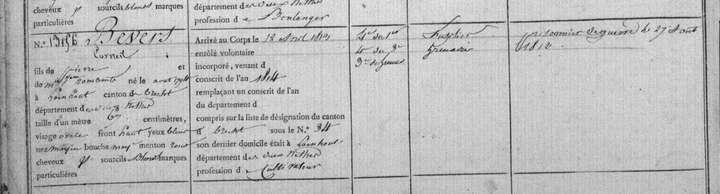 cheveux sourcils blonds marques
particulières
département des Deux Nethes
profession de Boulanger
N.° 13156 Pevers
Corneil
fils de Pierre et
de né le août 1794
à canton de Brecht
département des Deux Nethes
taille d'un mètre centimètres,
visage ovale front haut yeux bleus
nez bouche moy menton rond
cheveux sourcils Blonds marques
particulières
Arrivé au Corps le 18 Avril 1813
enrôlé volontaire
incorporé, venant d
conscrit de l'an 1814
remplaçant un conscrit de l'an
du département d
compris sur la liste de désignation du canton
d Brecht sous le N.° 34
son dernier domicile était à Loenhout
département des Deux Nethes
profession de Cultivateur
Fusilier
Grenadier
prisonnier de guerre le 27 Août
1813